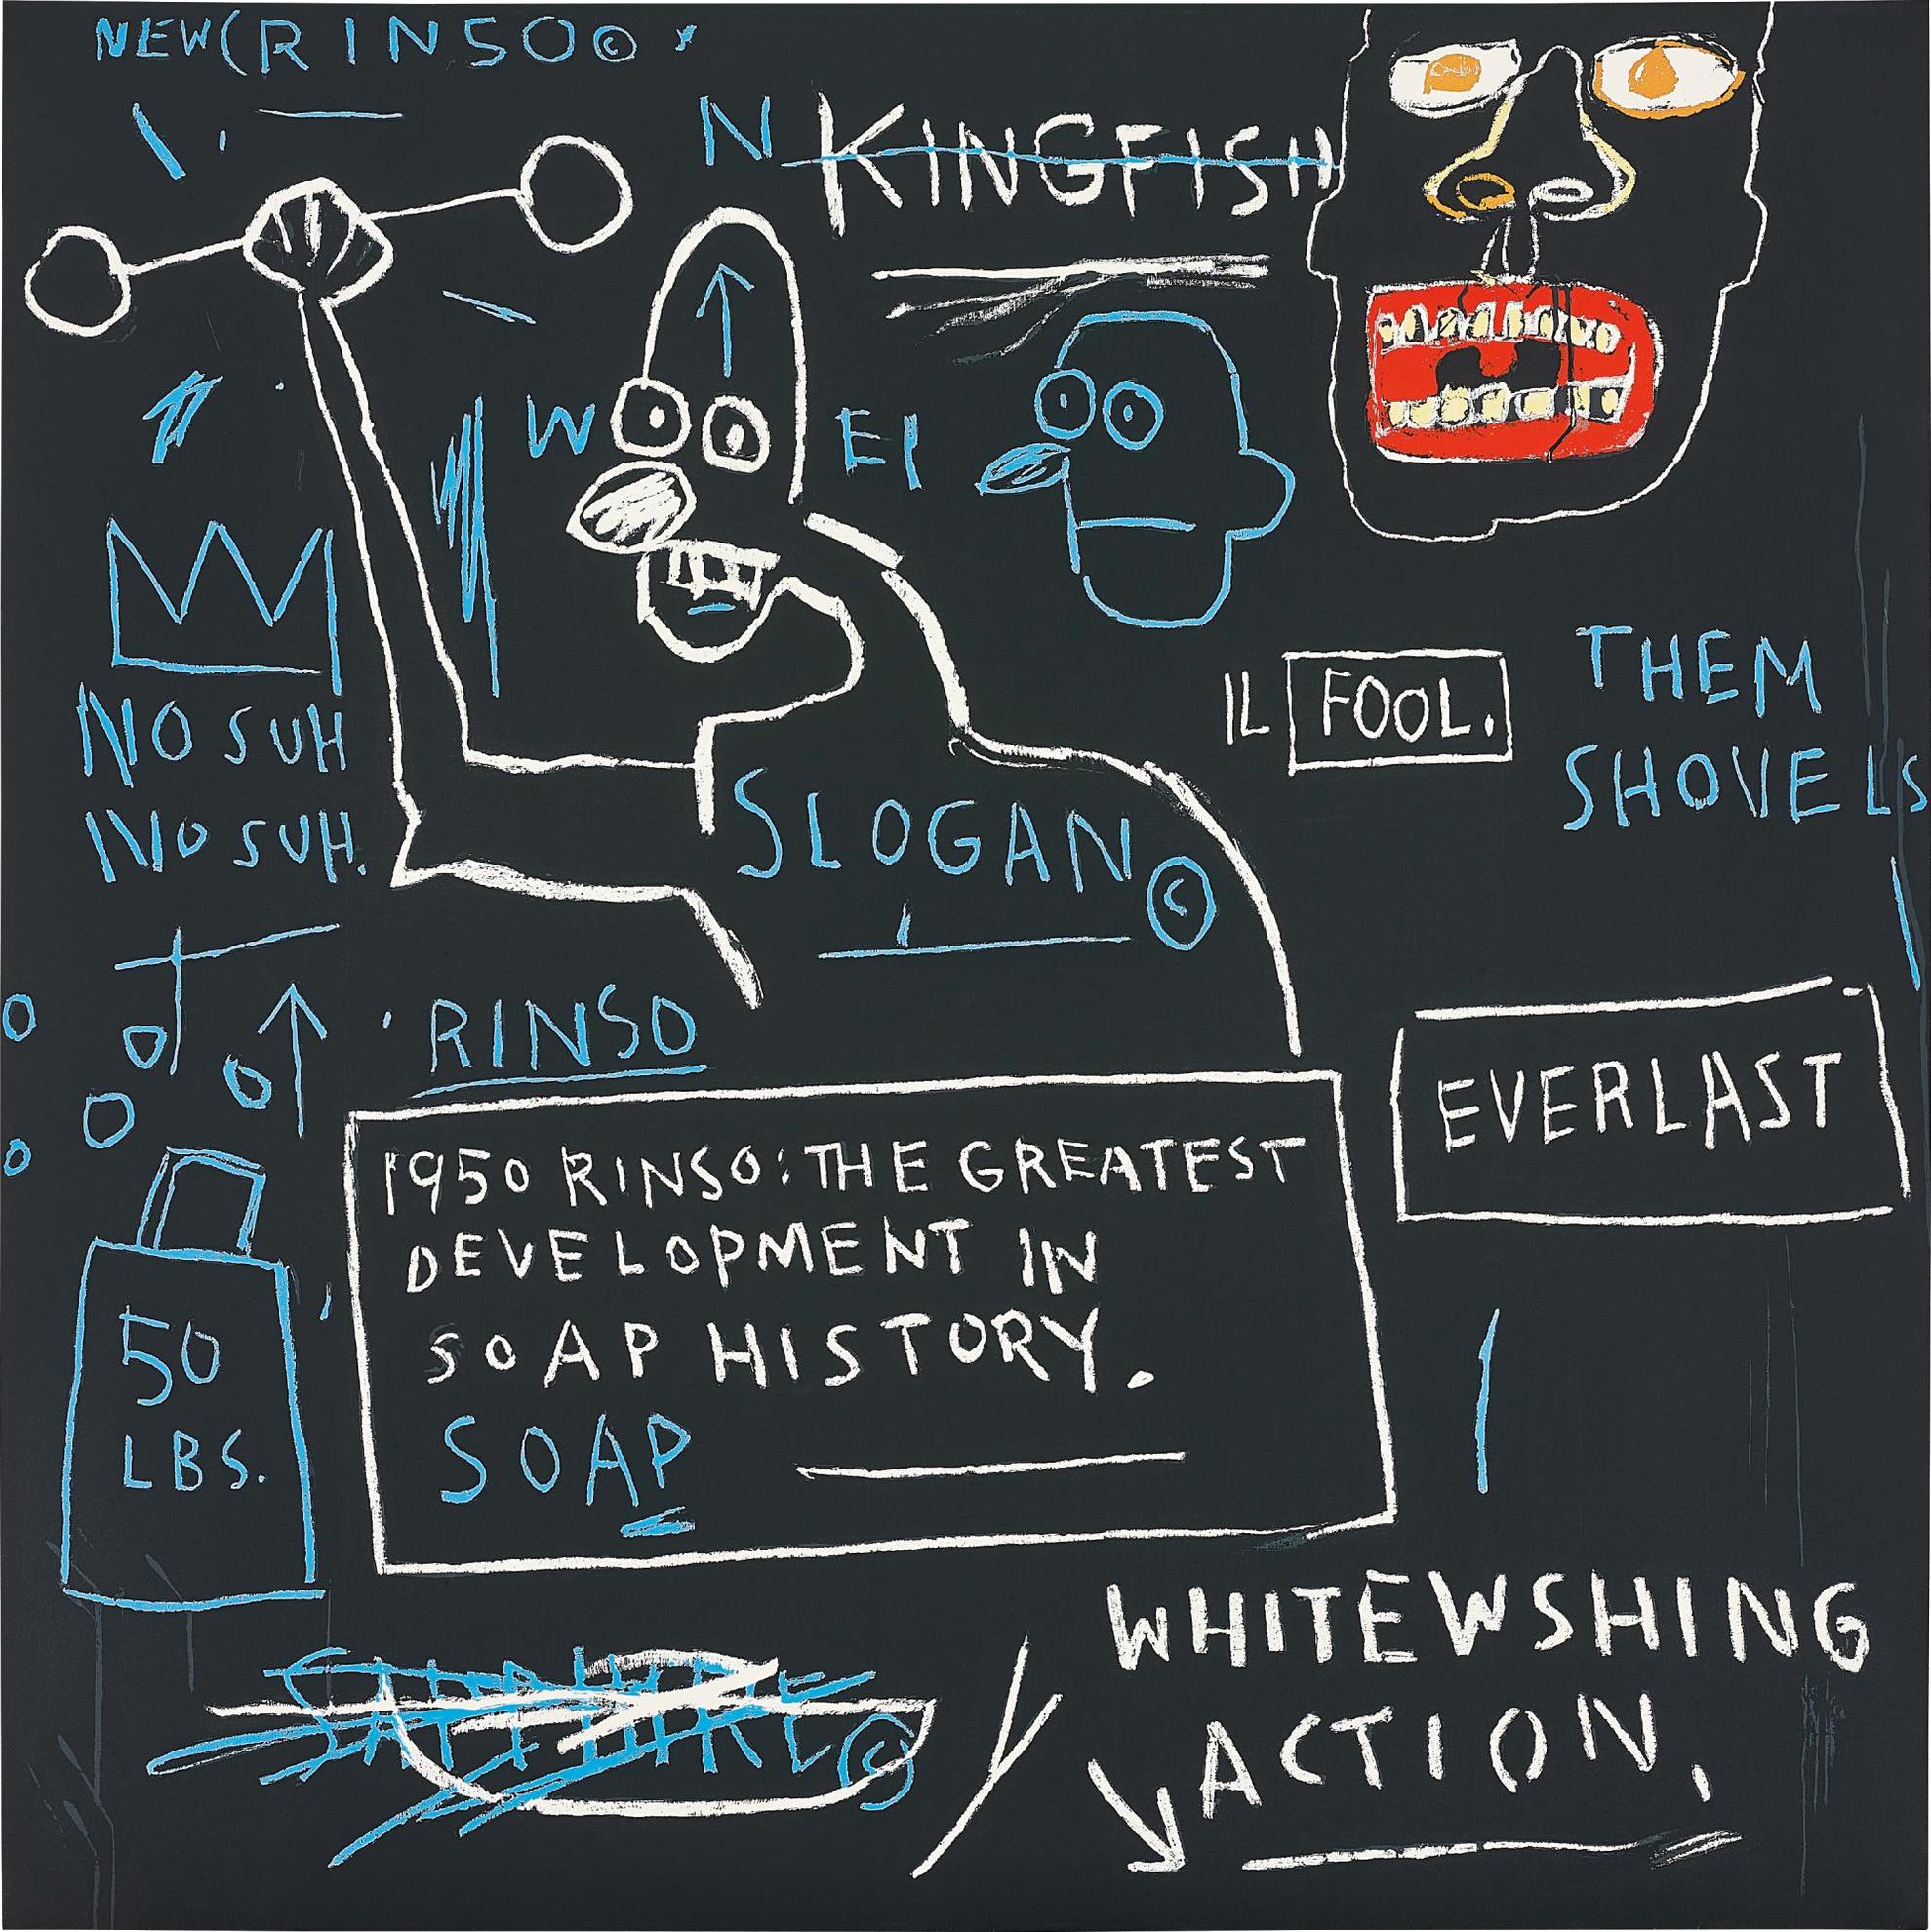 NEW(RINSO©
N KINGFISH
W EI
IL FOOL.
THEM
SHOVELS
NO SUH
NO SUH.
SLOGAN©
RINSO
EVERLAST
1950 RINSO: THE GREATEST
DEVELOPMENT IN
SOAP HISTORY.
SOAP
50
LBS.
WHITEWSHING
ACTION.